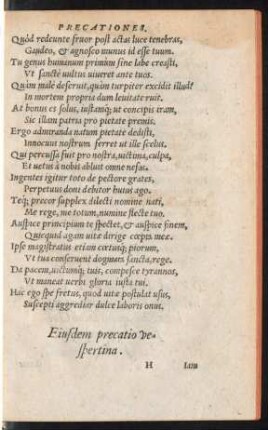 PRECATIONES.
Quòd redeunte fruor post actas luce tenebras,
Gaudeo, & agnosco munus id esse tuum.
Tu genus humanum primùm sine labe creasti,
Vt sanctè uultus uiueret ante tuos.
Quàm malè deseruit, quàm turpiter excidit illud?
In mortem propria dum leuitate ruit.
At bonus es solus, iustamq; ut concipis iram,
Sic illam patria pro pietate premis.
Ergo admiranda natum pietate dedisti,
Innocuus nostrum ferret ut ille scelus.
Qui percussa fuit pro nostra, uictima, culpa,
Et uetus à nobis abluit omne nefas.
Ingentes igitur toto de pectore grates,
Perpetuus doni debitor huius ago.
Teq; precor supplex dilecti nomine nati,
Me rege, me totum, numine flecte tuo.
Auspice principium te spectet, & auspice finem,
Quicquid agam uitæ dirige cœpta meæ.
Ipse magistratus etiam cœtusq; piorum,
Vt tua conseruent dogmata sancta, rege.
Da pacem, uictumq; tuis, compesce tyrannos,
Vt maneat uerbi gloria iusta tui.
Hac ego spe fretus, quod uitæ postulat usus,
Suscepti aggrediar dulce laboris onus.
Eiusdem precatio ue-
spertina.
H